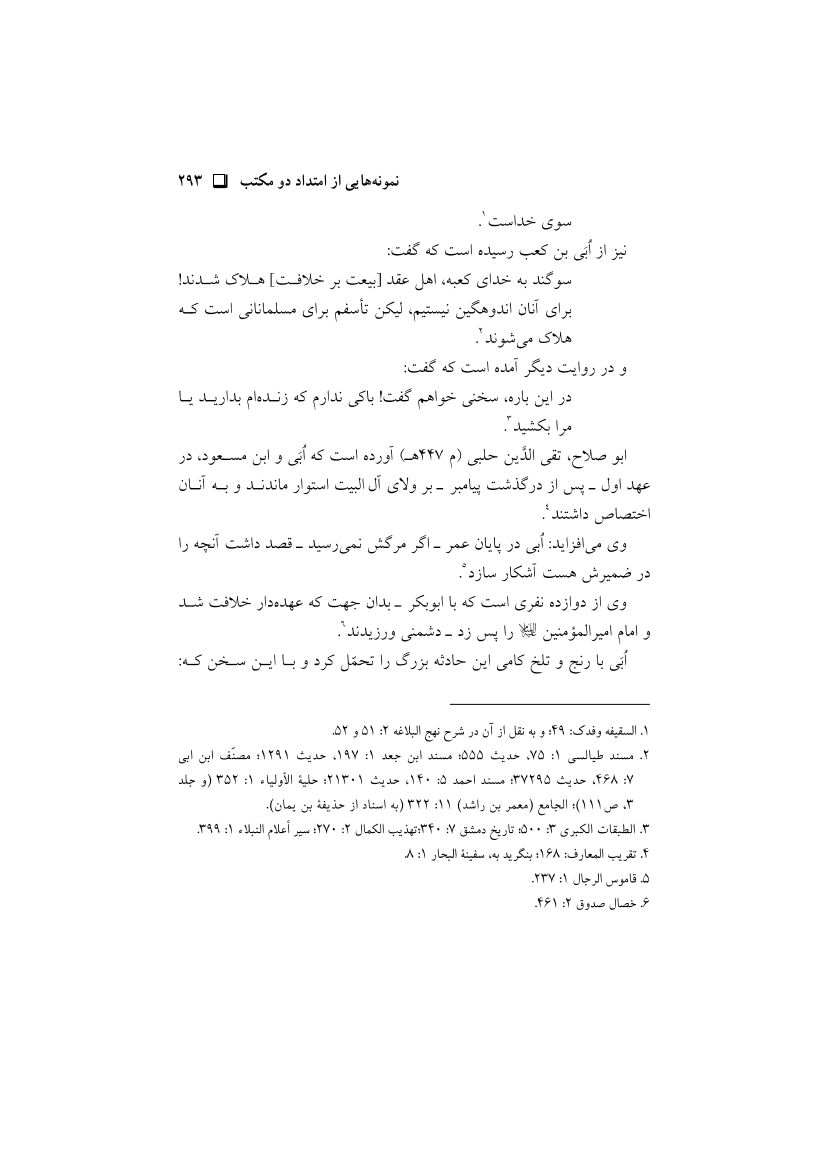 نمونه‌هایی از امتداد دو مکتب ❑ ۲۹۳
سوی خداست۱.
نیز از اُبَی بن کعب رسیده است که گفت:
سوگند به خدای کعبه، اهل عقد [بیعت بر خلافت] هلاک شدند!
برای آنان اندوهگین نیستیم، لیکن تأسفم برای مسلمانانی است که
هلاک می‌شوند۲.
و در روایت دیگر آمده است که گفت:
در این باره، سخنی خواهم گفت! باکی ندارم که زنده‌ام بدارید یا
مرا بکشید۳.
ابو صلاح، تقی الدَّین حلبی (م ۴۴۷هـ) آورده است که اُبَی و ابن مسعود، در
عهد اول ـ پس از درگذشت پیامبر ـ بر ولای آل البیت استوار ماندند و به آنان
اختصاص داشتند۴.
وی می‌افزاید: اُبی در پایان عمر ـ اگر مرگش نمی‌رسید ـ قصد داشت آنچه را
در ضمیرش هست آشکار سازد۵.
وی از دوازده نفری است که با ابوبکر ـ بدان جهت که عهده‌دار خلافت شد
و امام امیرالمؤمنین را پس زد ـ دشمنی ورزیدند۶.
اُبَی با رنج و تلخ کامی این حادثه بزرگ را تحمّل کرد و با این سخن که:
۱. السقیفه وفدک: ۴۹؛ و به نقل از آن در شرح نهج البلاغه ۲: ۵۱ و ۵۲.
۲. مسند طیالسی ۱: ۷۵، حدیث ۵۵۵؛ مسند ابن جعد ۱: ۱۹۷، حدیث ۱۲۹۱؛ مصنّف ابن ابی
۷: ۴۶۸، حدیث ۳۷۲۹۵؛ مسند احمد ۵: ۱۴۰، حدیث ۲۱۳۰۱؛ حلیة الأولیاء ۱: ۳۵۲ (و جلد
۳، ص۱۱۱)؛ الجامع (معمر بن راشد) ۱۱: ۳۲۲ (به اسناد از حذیفة بن یمان).
۳. الطبقات الکبری ۳: ۵۰۰؛ تاریخ دمشق ۷: ۳۴۰؛تهذیب الکمال ۲: ۲۷۰؛ سیر أعلام النبلاء ۱: ۳۹۹.
۴. تقریب المعارف: ۱۶۸؛ بنگرید به، سفینة البحار ۱: ۸.
۵. قاموس الرجال ۱: ۲۳۷.
۶. خصال صدوق ۲: ۴۶۱.